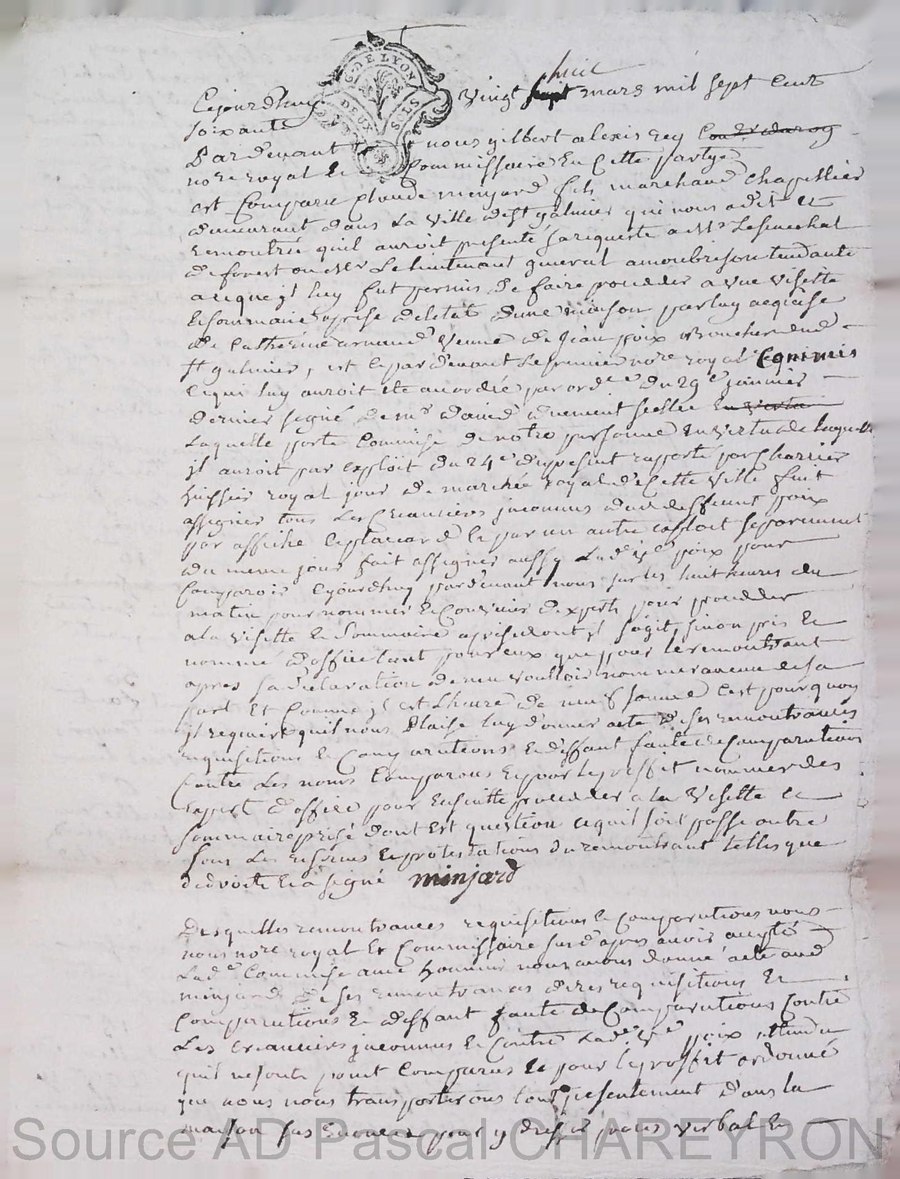 G. DE LYON
DEUX SOLS
Cejourdhuy vingt huit sept mars mil sept cent
soixante
Pardevant nous gilbert alexis rey
nore royal Et Commissaire En Cette partye
Est Comparu plaude minjard fils marchand chapellier
demeurant dans La ville de st galmier qui nous a dit Et
remontré quil auroit présenté sa requeste a Mr Lesenechal
de forest ou Mr Le lieutenant general a montbrison tendante
a ce que jl luy fut permis de faire proceder a vue visitte
Et sommaire aprise de letat dune maison par luy acquise
de Catherine veuve de jean poix Boucher dud
st galmier, et ce pardevant Le premier nore royal Commis
Ce qui luy auroit été accordée par ordce du 29e janvier
dernier signé de mr duement scellée
Laquelle porte Commise de notre personne En vertu de laquelle
jl auroit par exploit du 24e du present rapporté par Charrier
huissier royal jour de marché royal de Cette ville fait
assigner tous Les Creanciers jnconnus dud deffunt poix
par affiche Et placard Et par un autre exploit separement
du meme jour fait assigner aussy Lade ve poix pour
Comparoir Cejourdhuy pardevant nous sur les huit heures du
matin pour nommer Et Convenir dexperts pour proceder
a la visitte Et sommaire aprise dont jl sagit sinon pris Et
nommé doffice tant pour eux que pour le remontrant
apres sa declaration de ne vouloir nommer aucun de sa
part Et Comme jl est Lheure de neuf sonnée Cest pourquoy
jl requiert quil nous plaise luy donner acte de ses remontrances
requisitions Et Comparutions Et deffaut faute de Comparution
Contre Les nons Comparans Et pour le proffit nommer des
Expert doffice pour Ensuitte proceder a la visitte Et
sommaire prise dont Est question Et quil soit passé outre
sous Les reserves Et protestations du remontrant telles que
de droit Et a signé minjard
Desquelles remontrances requisitions Et Comparutions nous
nous nore royal Et Commissaire susd apres avoir accepté
Lade Commise avec honneur nous avons donné acte aud
minjard de ses remontrances dires requisitions Et
Comparutions Et deffaut faute de Comparutions Contre
Les creanciers jnconnus Et Contre Lade ve poix attendu
quil ne sont point Comparus Et pour le proffit ordonné
que nous nous transporterons tout presentement dans la
maison sus Enoncée pour y dresser procès verbal Et
Source AD Pascal CHAREYRON